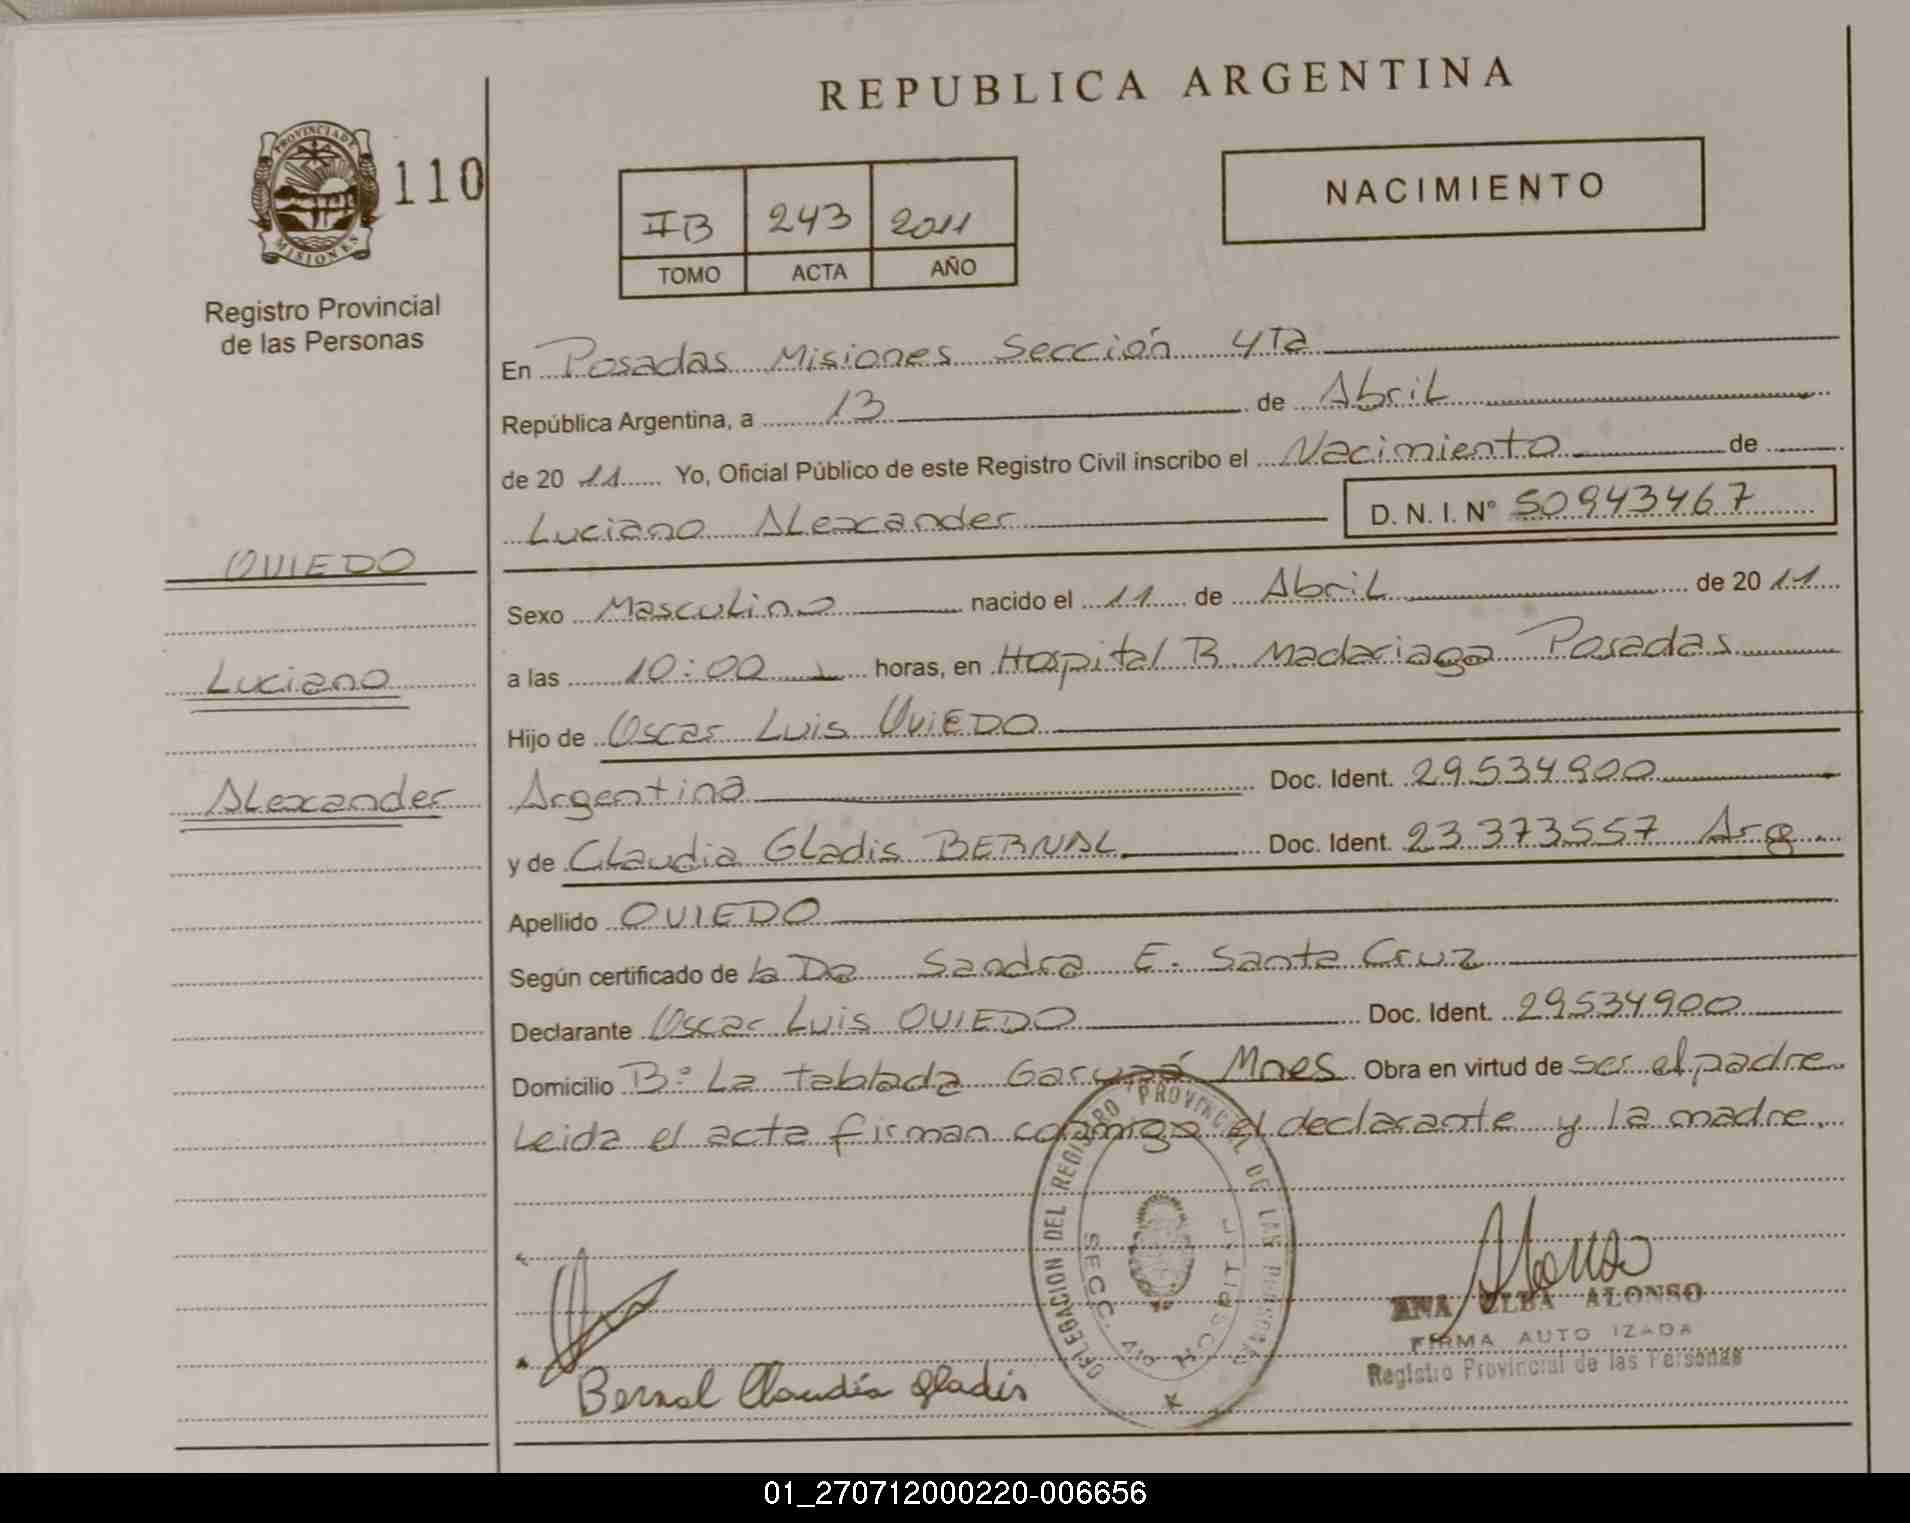 REPUBLICA ARGENTINA
PROVINCIA DE MISIONES
110
Registro Provincial
de las Personas
IIB 243 2011
TOMO ACTA AÑO
NACIMIENTO
En Posadas Misiones Sección 4ta
República Argentina, a 13 de Abril
de 2011 Yo, Oficial Público de este Registro Civil inscribo el Nacimiento de
Luciano Alexander D. N. I. N° 50943467
OVIEDO
Luciano
Alexander
Sexo Masculino nacido el 11 de Abril de 2011
a las 10:00 horas, en Hospital R. Madariaga Posadas
Hijo de Oscar Luis OVIEDO
Argentina Doc. Ident. 29534900
y de Claudia Gladis BERNAL Doc. Ident. 23373557 Arg
Apellido OVIEDO
Según certificado de la Da Sandra E. Santa Cruz
Declarante Oscar Luis OVIEDO Doc. Ident. 29534900
Domicilio B° La tablada Garupá Mnes Obra en virtud de ser el padre
Leida el acta firman conmigo el declarante y la madre.
DELEGACION DEL REGISTRO PROVINCIAL DE LAS PERSONAS
SECC.
Alonso
ANA ELBA ALONSO
FIRMA AUTO IZADA
Registro Provincial de las Personas
Bernal Claudia Gladis
01_270712000220-006656